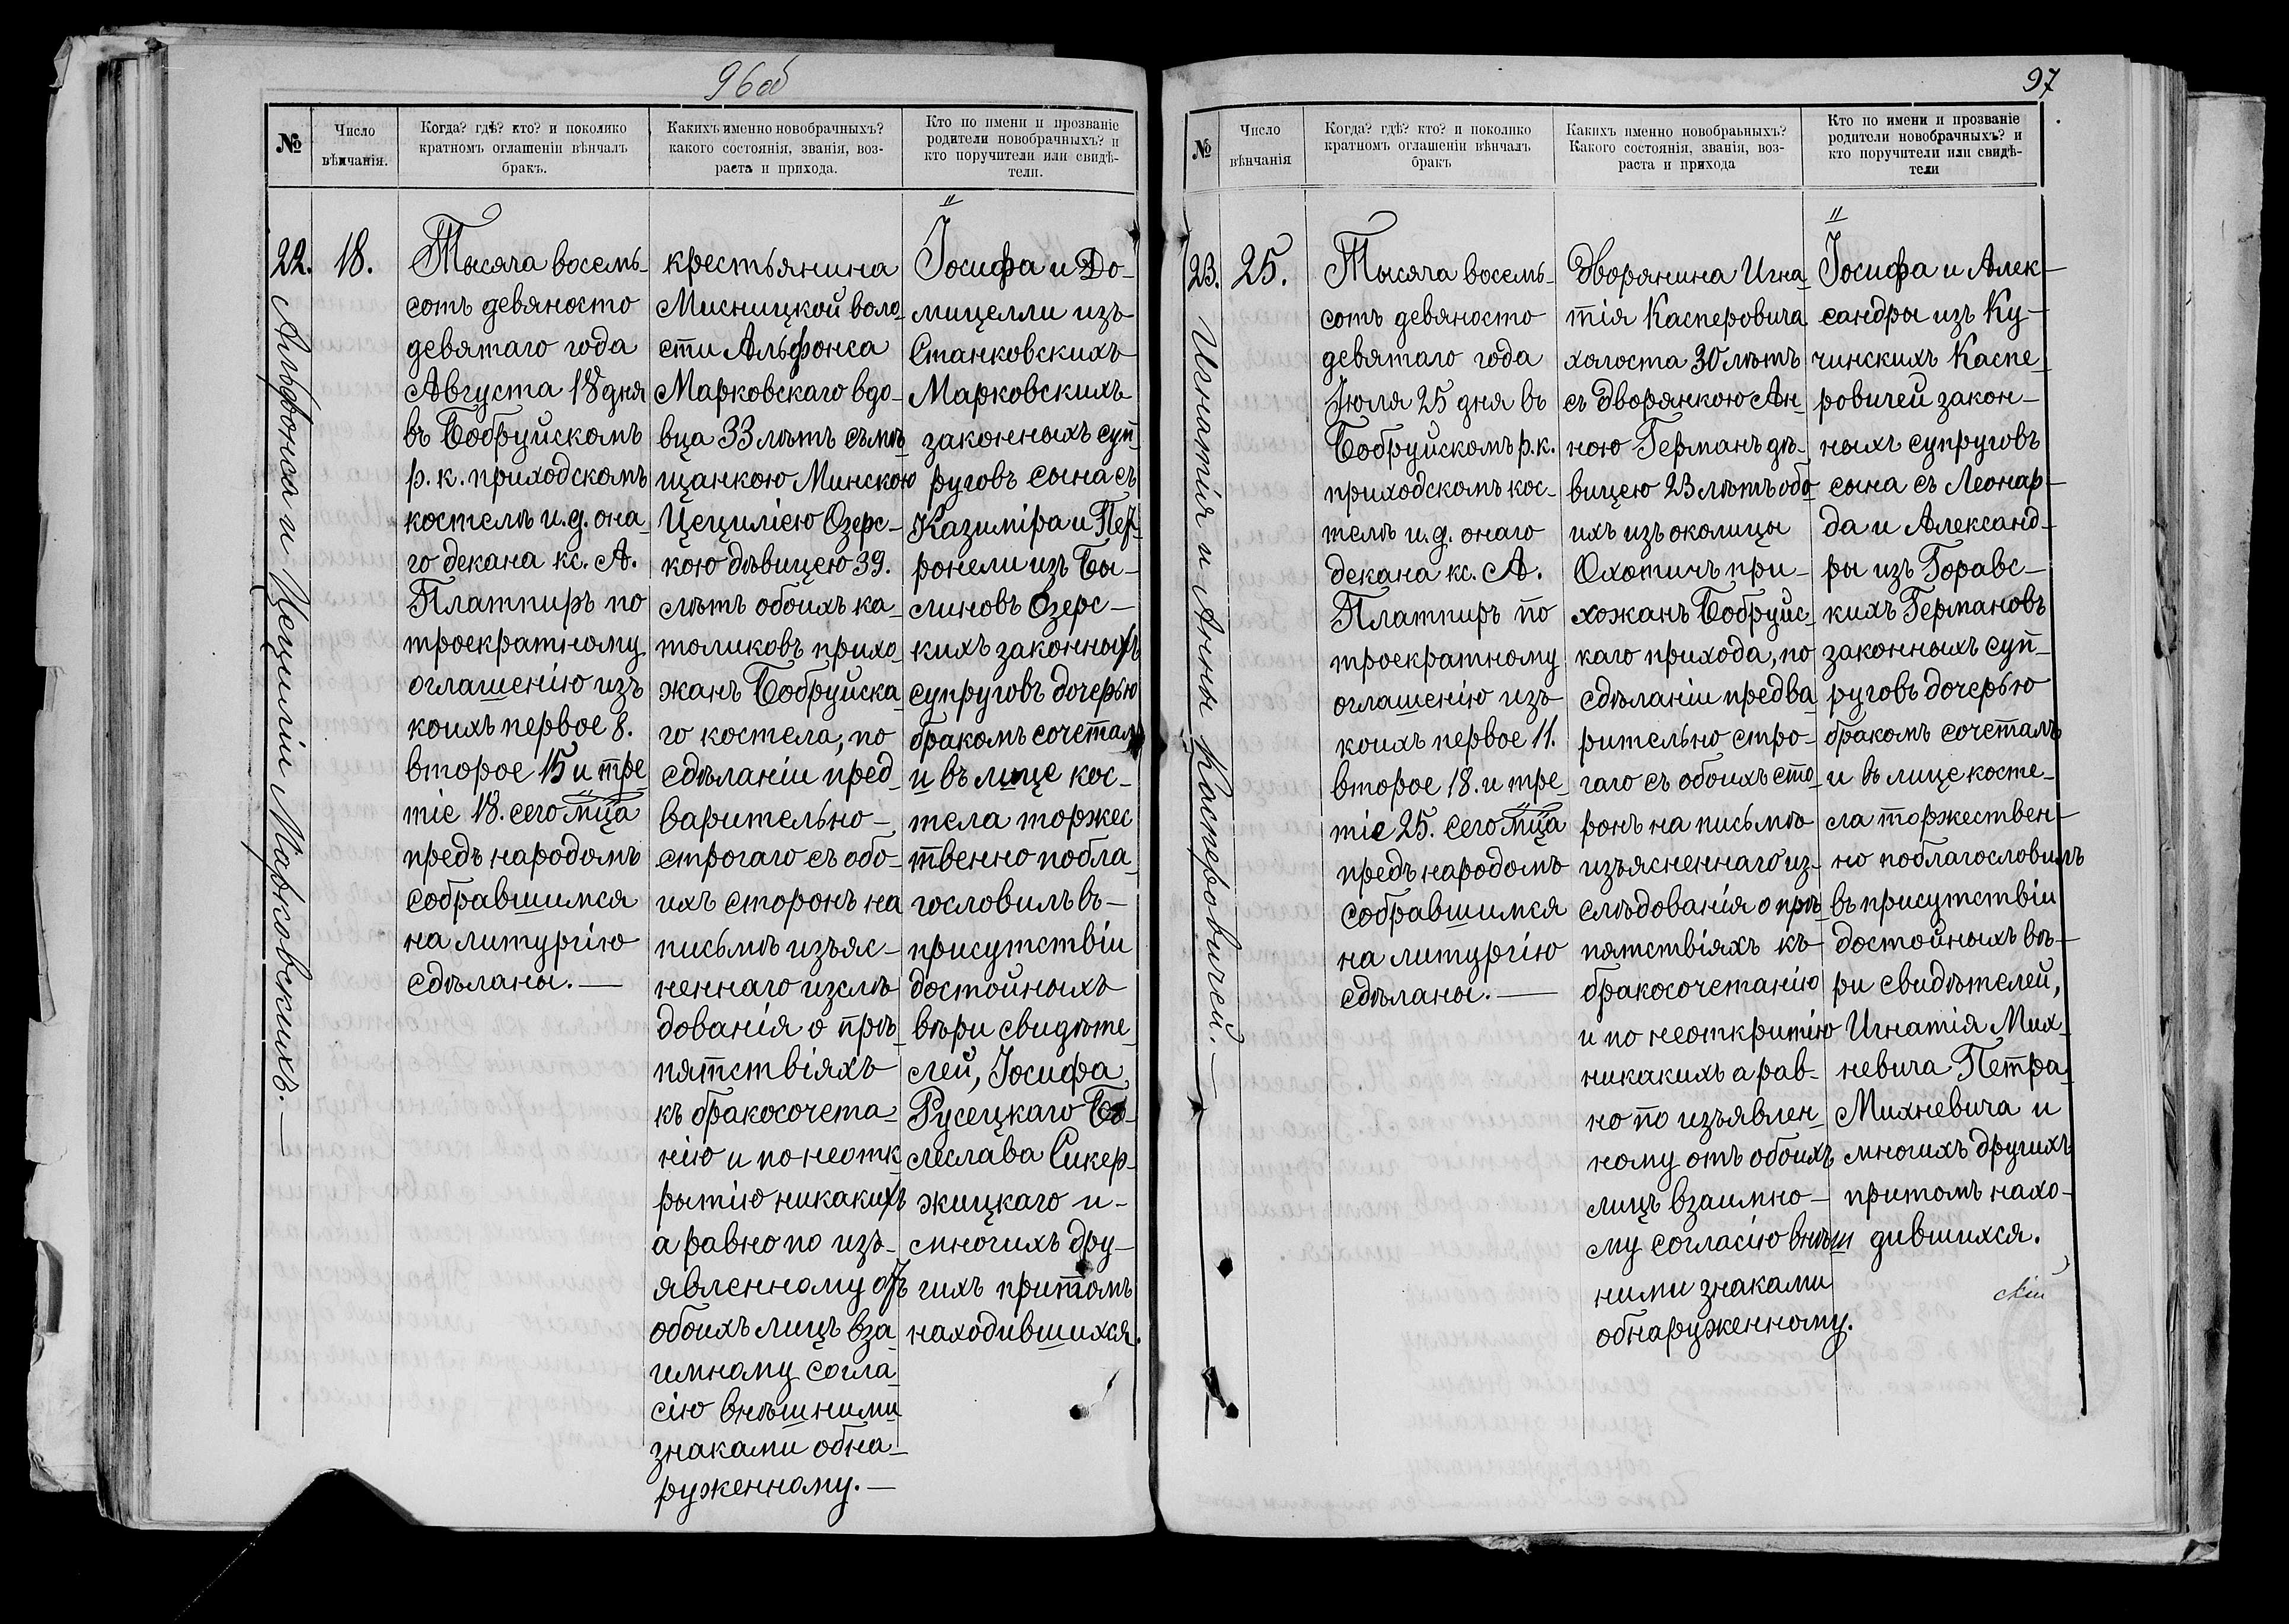 96об
№
Число
вѣнчанія.
Когда? гдѣ? кто? и поколико
кратномъ оглашеніи вѣнчалъ
бракъ.
Какихъ именно новобрачныхъ?
какого состоянія, званія, воз-
раста и прихода.
Кто по имени и прозваніе
родители новобрачныхъ? и
кто поручители или свидѣ-
тели.
22.
Альфонса и Цециліи Марковскихъ.—
18.
Тысяча восемь-
сотъ девяносто
девятаго года
Августа 18 дня
въ Бобруйскомъ
р. к. приходскомъ
костелѣ и. д. она-
го декана кс. А.
Платпиръ по
троекратному
оглашенію изъ
коихъ первое 8.
второе 15 и тре
тіе 18. сего мца
предъ народомъ
собравшимся
на литургію
сдѣланы.—
крестьянина
Мисницкой воло-
сти Альфонса
Марковскаго вдо-
вца 33 лѣтъ съ мѣ-
щанкою Минскою
Цециліею Озерс-
кою дѣвицею 39.
лѣтъ обоихъ ка-
толиковъ прихо-
жанъ Бобруйска-
го костела, по
сдѣланіи пред-
варительно-
строгаго съ обо-
ихъ сторонъ на
письмѣ изъяс-
неннаго изслѣ
дованія о прѣ-
пятствіяхъ
къ бракосочета-
нію и по неотк-
рытію никакихъ
а равно по изъ-
явленному отъ
обоихъ лицъ вза
имному согла-
сію внѣшними
знаками обна-
руженному.—
Іосифа и До-
мицелли изъ
Станковскихъ
Марковскихъ
законныхъ суп-
руговъ сына съ
Казиміра и Пет-
ронели изъ Бы-
линовъ Озерс-
кихъ законныхъ
супруговъ дочерью
бракомъ сочеталъ
и въ лице кос-
тела торжес
твенно побла-
гословилъ въ-
присутствіи
достойныхъ
вѣри свидѣте-
лей, Іосифа
Русецкаго Бо-
леслава Сикер-
жицкаго и-
многихъ дру-
гихъ притомъ
находившихся.
97
№
Число
вѣнчанія
Когда? гдѣ? кто? и поколико
кратномъ оглашеніи вѣнчалъ
бракъ
Какихъ именно новобраьныхъ?
Какого состоянія, званія, воз-
раста и прихода
Кто по имени и прозваніе
родители новобрачныхъ? и
кто поручители или свидѣ-
тели
23.
Игнатія и Анны Касперовичей.—
25.
Тысяча восемь-
сотъ девяносто
девятаго года
Іюля 25 дня въ
Бобруйскомъ р. к.
приходскомъ кос-
телѣ и. д. онаго
декана кс. А.
Платпиръ по
троекратному
оглашенію изъ
коихъ первое 11.
второе 18. и тре-
тіе 25. сего мца
предъ народомъ
собравшимся
на литургію
сдѣланы.—
Дворянина Игна-
тія Касперовича
холоста 30 лѣтъ
съ Дворянкою Ан-
ною Германъ дѣ-
вицею 23 лѣтъ обо-
ихъ изъ околицы
Охотичъ при-
хожанъ Бобруйс-
каго прихода, по
сдѣланіи предва-
рительно стро-
гаго съ обоихъ сто-
ронъ на письмѣ
изъясненнаго из-
слѣдованія о прѣ-
пятствіяхъ къ-
бракосочетанію
и по неоткритію
никакихъ а рав-
но по изъявлен-
ному отъ обоихъ
лицъ взаимно-
му согласію внѣш
ними знаками
обнаруженному.
Іосифа и Алек-
сандры изъ Ку-
чинскихъ Каспе-
ровичей закон-
ныхъ супруговъ
сына съ Леонар-
да и Александ-
ры изъ Горавс-
кихъ Германовъ
законныхъ суп-
руговъ дочерью
бракомъ сочеталъ
и въ лице косте-
ла торжествен-
но поблагословилъ
въ присутствіи
достойныхъ вѣ-
ри свидѣтелей,
Игнатія Мих-
невича Петра
Михневича и
многихъ другихъ
притомъ нахо-
дившихся.